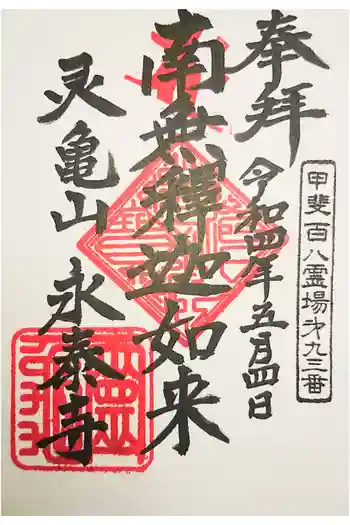 甲斐百八霊場第九三番
奉拝
令和四年五月四日
南無釋迦如来
灵亀山 永泰寺